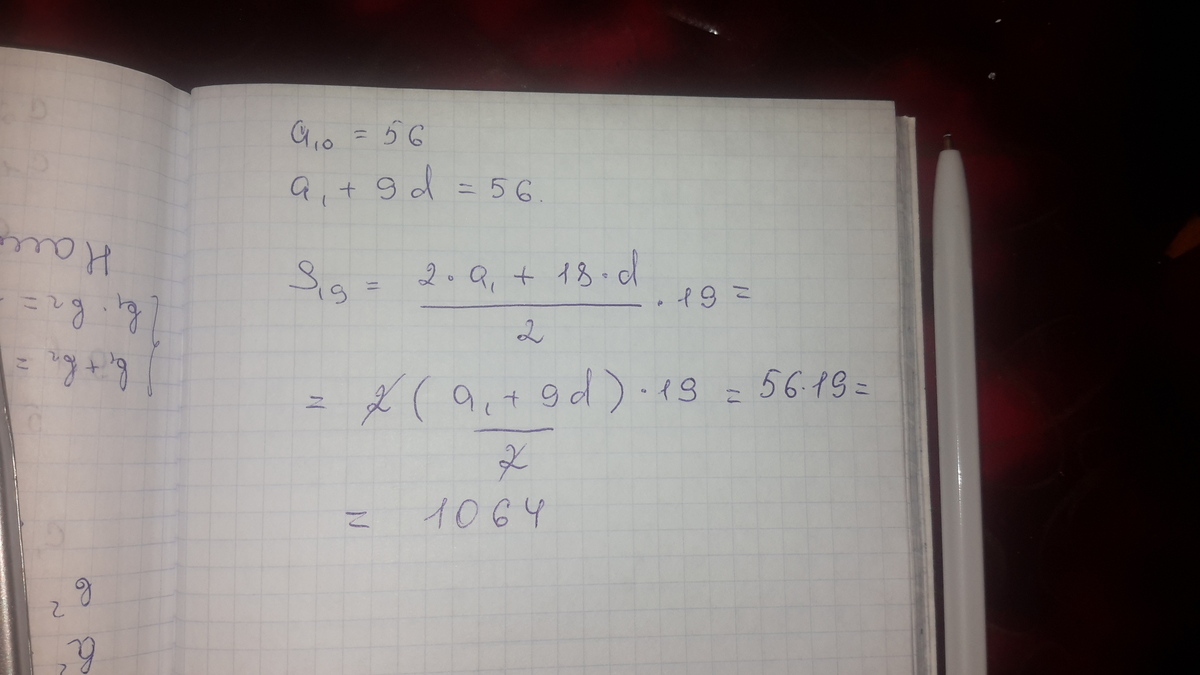 a₁₀ = 56
a₁ + 9d = 56.
S₁₉ = (2·a₁ + 18·d)/2 · 19 =
= 2(a₁ + 9d)/2 · 19 = 56·19 =
= 1064
b₁ · b₂ =
b₁ + b₂ =